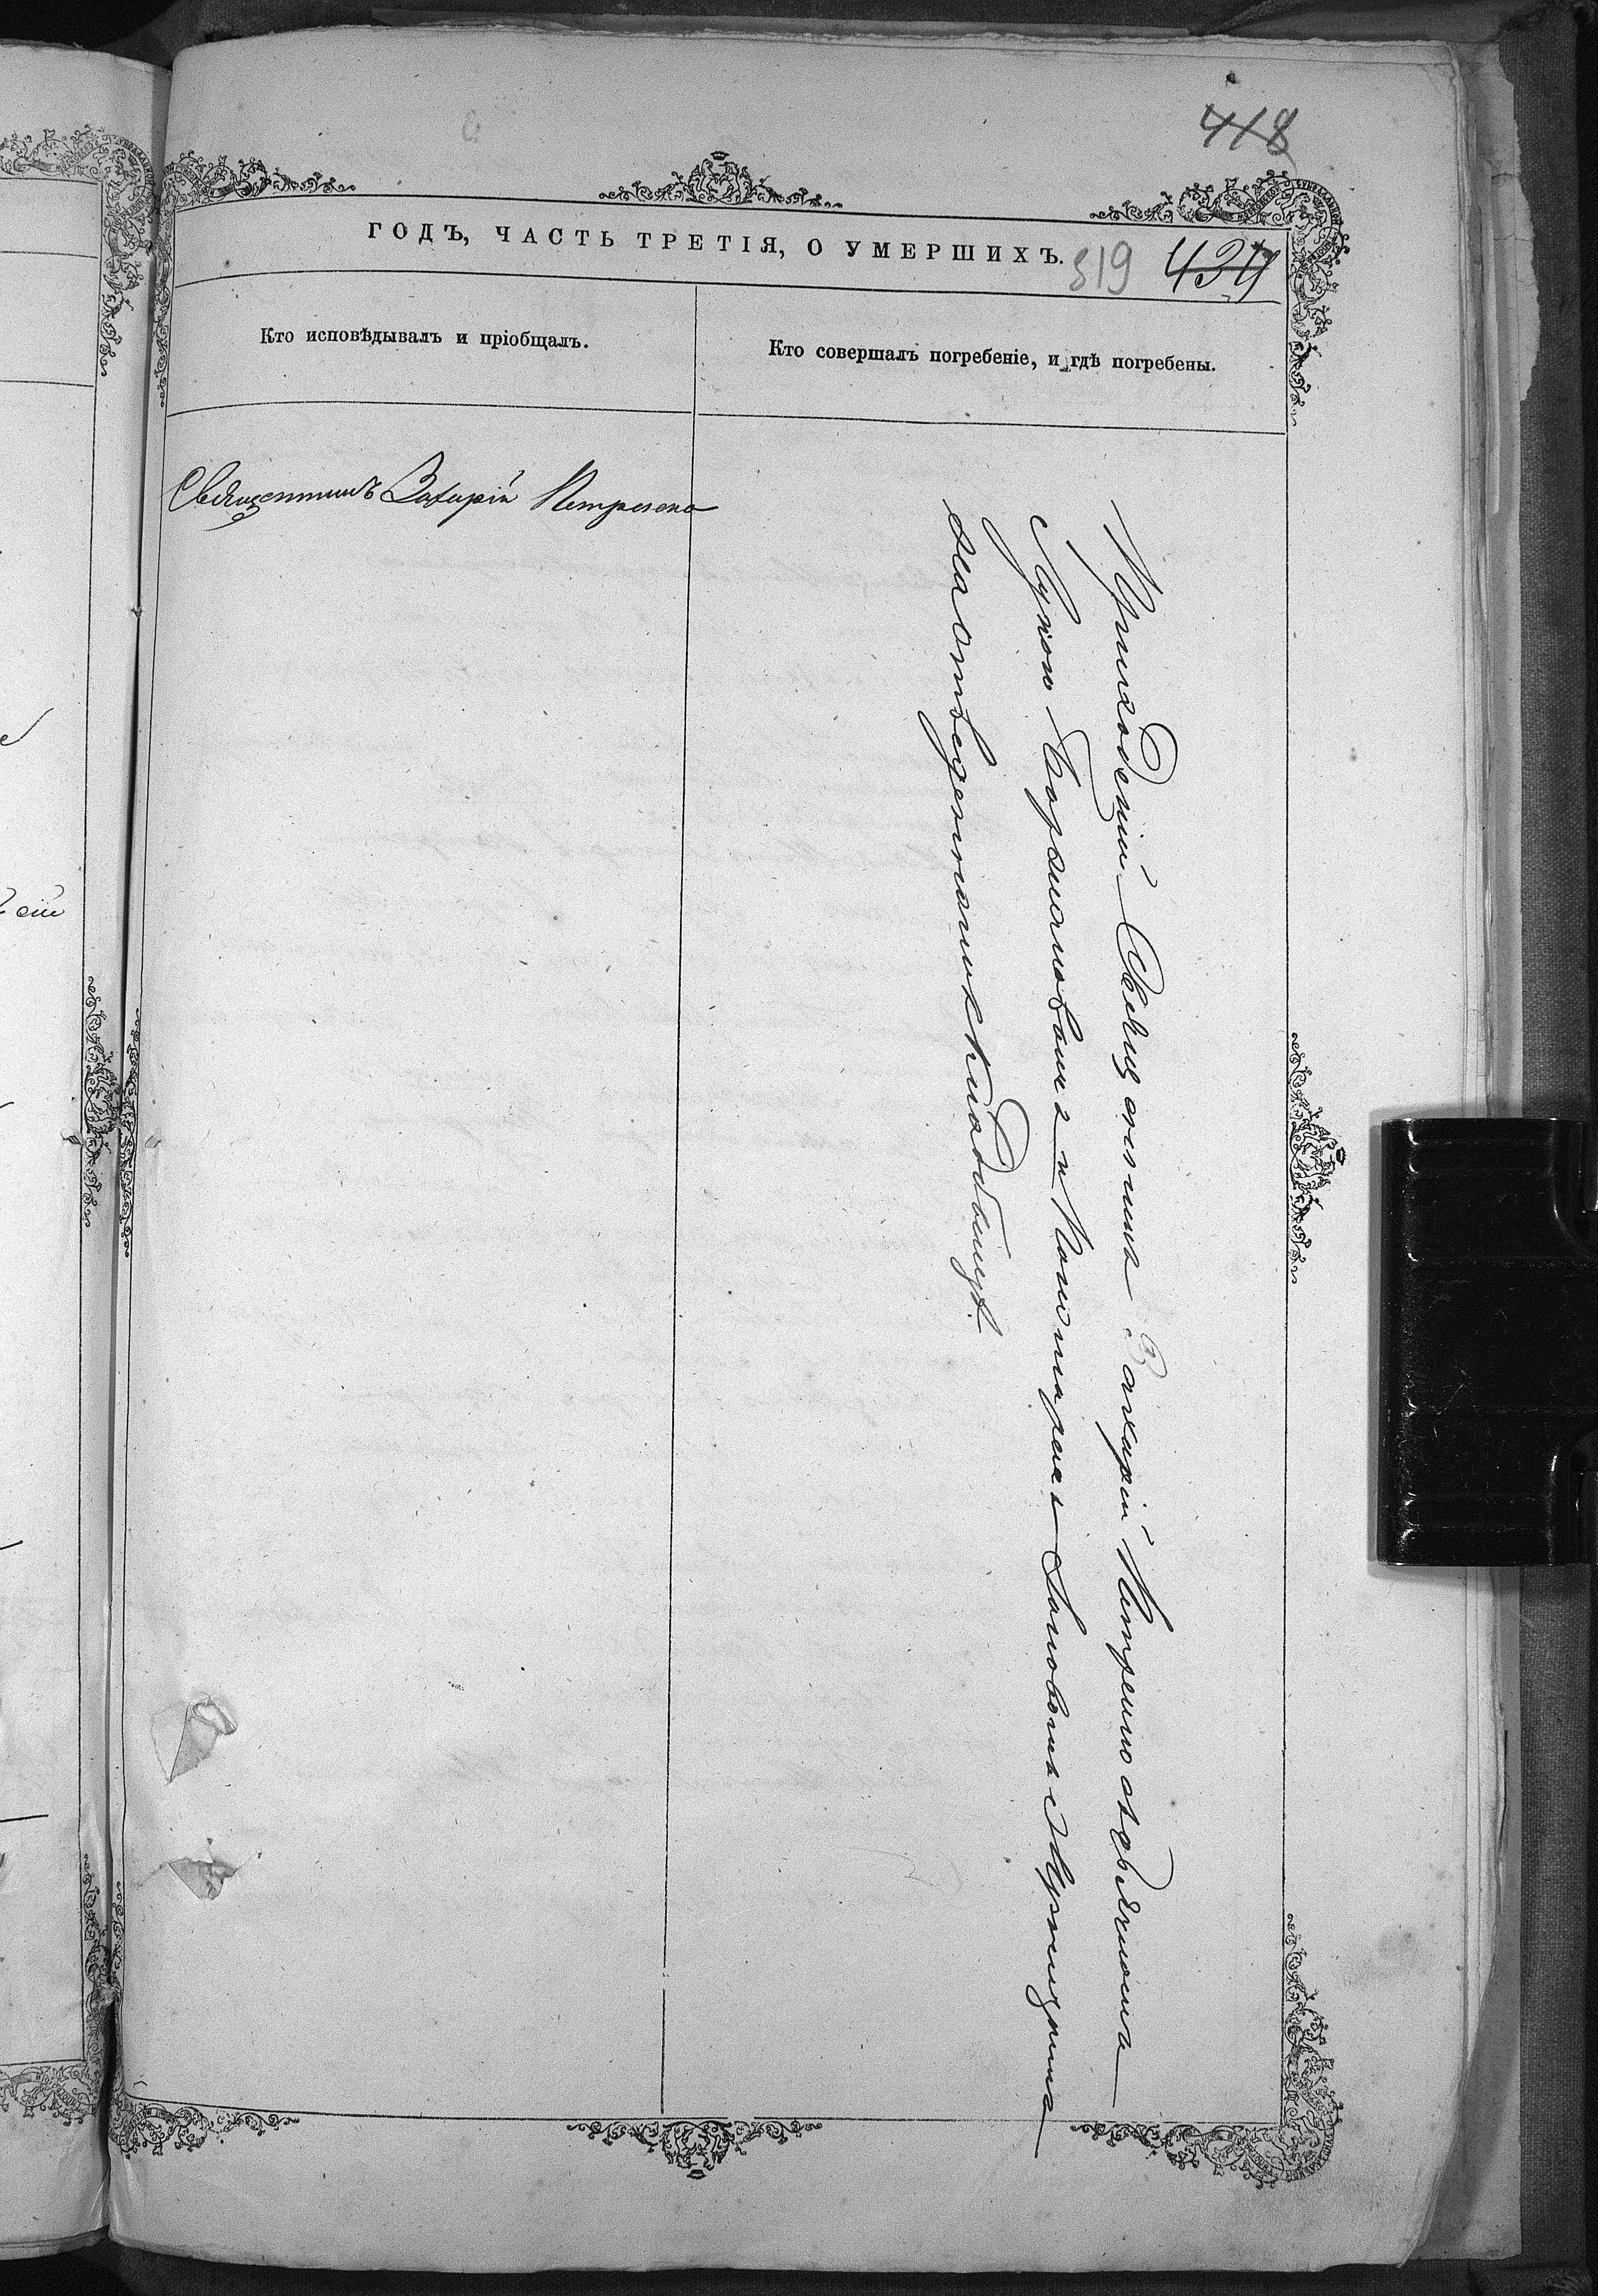 418
ГОДЪ, ЧАСТЬ ТРЕТІЯ, О УМЕРШИХЪ.
519 434
Кто исповѣдывалъ и пріобщалъ.
Кто совершалъ погребеніе, и гдѣ погребены.
Священникъ Захарій Петренко
Приходскій Священникъ Захарій Петренко съ дьякономъ
Лукою и Пономаремъ
на отведенномъ кладбищѣ.